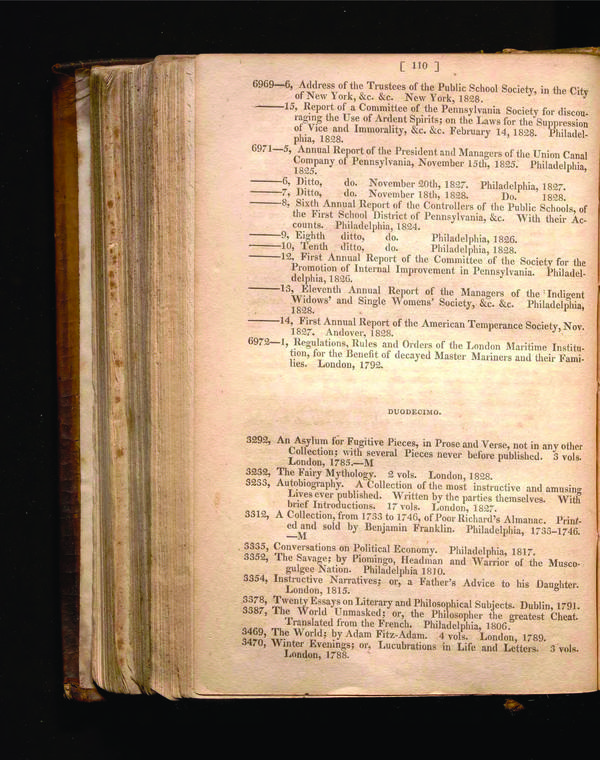 [ 110 ]
6969—6, Address of the Trustees of the Public School Society, in the City
of New York, &c. &c. New York, 1828.
——15, Report of a Committee of the Pennsylvania Society for discou-
raging the Use of Ardent Spirits; on the Laws for the Suppression
of Vice and Immorality, &c. &c. February 14, 1828. Philadel-
phia, 1828.
6971—5, Annual Report of the President and Managers of the Union Canal
Company of Pennsylvania, November 15th, 1825. Philadelphia,
1825.
——6, Ditto, do. November 20th, 1827. Philadelphia, 1827.
——7, Ditto, do. November 18th, 1828. Do. 1828.
——8, Sixth Annual Report of the Controllers of the Public Schools, of
the First School District of Pennsylvania, &c. With their Ac-
counts. Philadelphia, 1824.
——9, Eighth ditto, do. Philadelphia, 1826.
——10, Tenth ditto, do. Philadelphia, 1828.
——12, First Annual Report of the Committee of the Society for the
Promotion of Internal Improvement in Pennsylvania. Philadel-
delphia, 1826.
——13, Eleventh Annual Report of the Managers of the Indigent
Widows' and Single Womens' Society, &c. &c. Philadelphia,
1828.
——14, First Annual Report of the American Temperance Society, Nov.
1827. Andover, 1828.
6972—1, Regulations, Rules and Orders of the London Maritime Institu-
tion, for the Benefit of decayed Master Mariners and their Fami-
lies. London, 1792.
DUODECIMO.
3292, An Asylum for Fugitive Pieces, in Prose and Verse, not in any other
Collection; with several Pieces never before published. 3 vols.
London, 1785.—M
3232, The Fairy Mythology. 2 vols. London, 1828.
3233, Autobiography. A Collection of the most instructive and amusing
Lives ever published. Written by the parties themselves. With
brief Introductions. 17 vols. London, 1827.
3312, A Collection, from 1733 to 1746, of Poor Richard's Almanac. Print-
ed and sold by Benjamin Franklin. Philadelphia, 1733-1746.
—M
3335, Conversations on Political Economy. Philadelphia, 1817.
3352, The Savage; by Piomingo, Headman and Warrior of the Musco-
gulgee Nation. Philadelphia 1810.
3354, Instructive Narratives; or, a Father's Advice to his Daughter.
London, 1815.
3378, Twenty Essays on Literary and Philosophical Subjects. Dublin, 1791.
3387, The World Unmasked; or, the Philosopher the greatest Cheat.
Translated from the French. Philadelphia, 1806.
3469, The World; by Adam Fitz-Adam. 4 vols. London, 1789.
3470, Winter Evenings; or, Lucubrations in Life and Letters. 3 vols.
London, 1788.